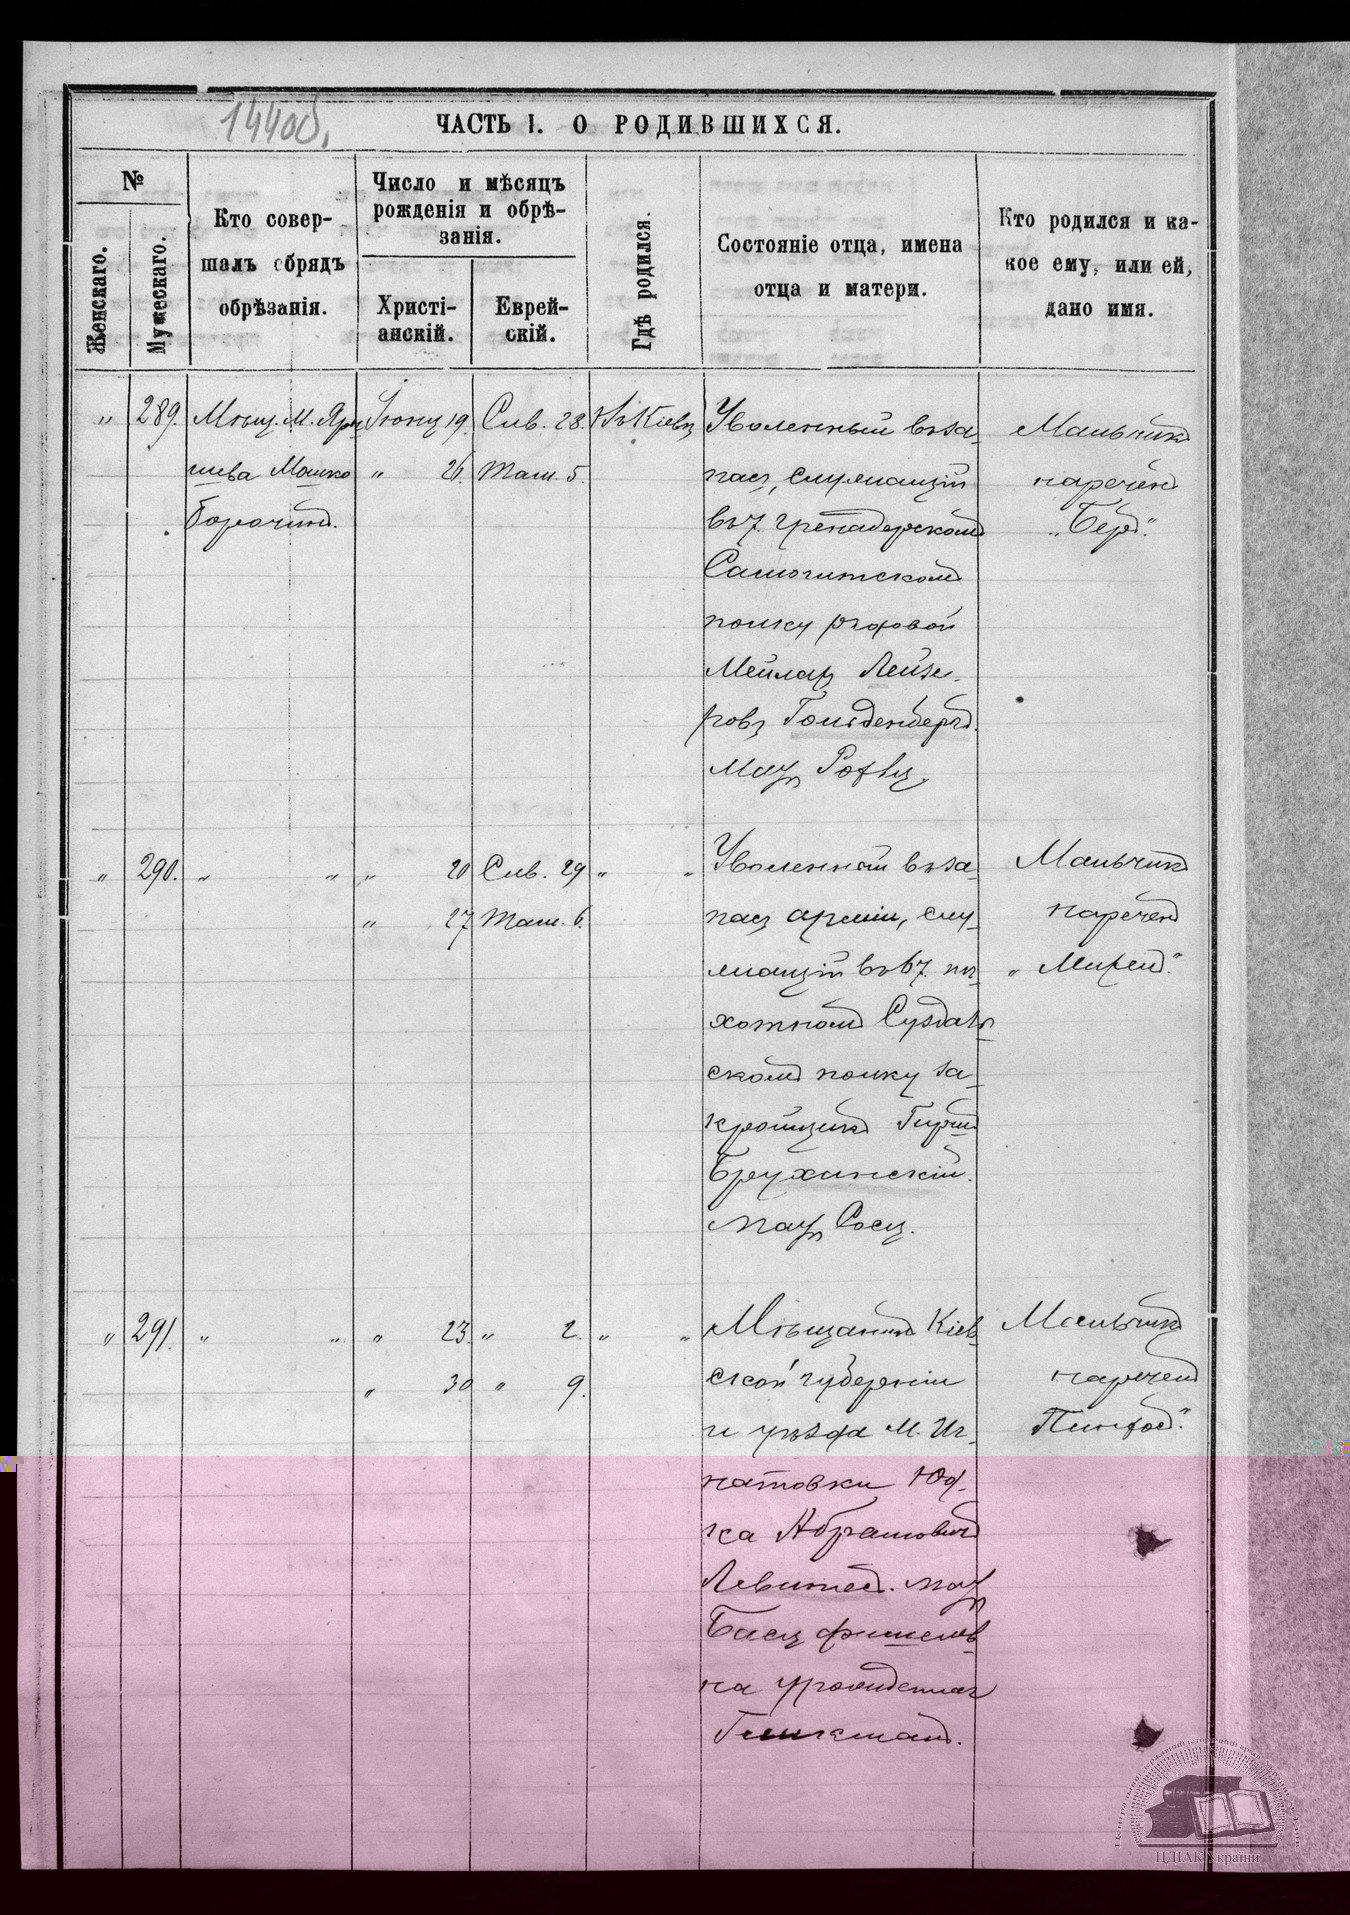 144об.
ЧАСТЬ I. О РОДИВШИХСЯ.
№
Женскаго.
Мужескаго.
Кто совер-
шалъ обрядъ
обрѣзанія.
Число и мѣсяцъ
рожденія и обрѣ-
занія.
Христі-
анскій.
Еврей-
скій.
Гдѣ родился.
Состояніе отца, имена
отца и матери.
Кто родился и ка-
кое ему, или ей,
дано имя.
" 289. Мѣщ. М. Яры-
шева Мошко
Борочинъ.
Іюня 19.
" 26.
Сив. 28.
Там. 5.
Въ Кіевѣ
Уволенный въ за-
пасъ, служащій
въ 7. гренадерскомъ
Самогитскомъ
полку рядовой
Мейлахъ Лейзе-
ровъ Гольденбергъ.
мать Рохля.
Мальчикъ
нареченъ
„Беръ".
" 290. " " " 20 Сив. 29 " "
" 27 Там. 6.
Уволенный въ за-
пасъ арміи, слу-
жащій въ 67. пѣ-
хотномъ Суздаль-
скомъ полку за-
кройщикъ Гиршъ
Брухинскій.
мать Сося.
Мальчикъ
нареченъ
„
" 291. " " " 23. " 2. " "
" 30 " 9.
Мѣщанинъ Кіев-
ской губерніи
и уѣзда М. Иг-
натовки Юд-
ка Абрамовичъ
Левитесъ. мать
Бася Фишелев-
на урожденная
Гликманъ.
Мальчикъ
нареченъ
Пинхосъ".
ЦДІАК України